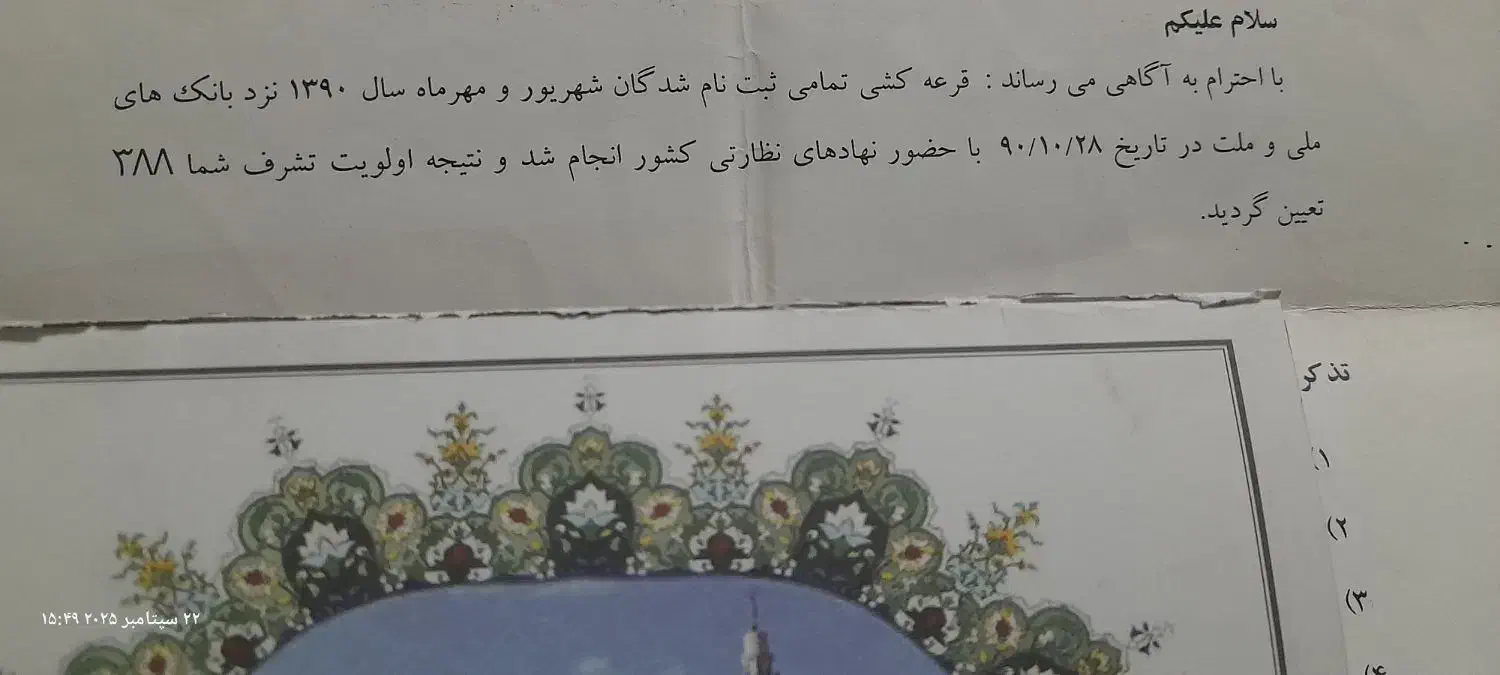 سلام علیکم
با احترام به آگاهی می رساند : قرعه کشی تمامی ثبت نام شدگان شهریور و مهرماه سال ۱۳۹۰ نزد بانک های
ملی و ملت در تاریخ ۹۰/۱۰/۲۸ با حضور نهادهای نظارتی کشور انجام شد و نتیجه اولویت تشرف شما ۳۸۸
تعیین گردید.
تذکر
۱)
۲)
۳)
۴)
۲۲ سپتامبر ۲۰۲۵ ۱۵:۴۹